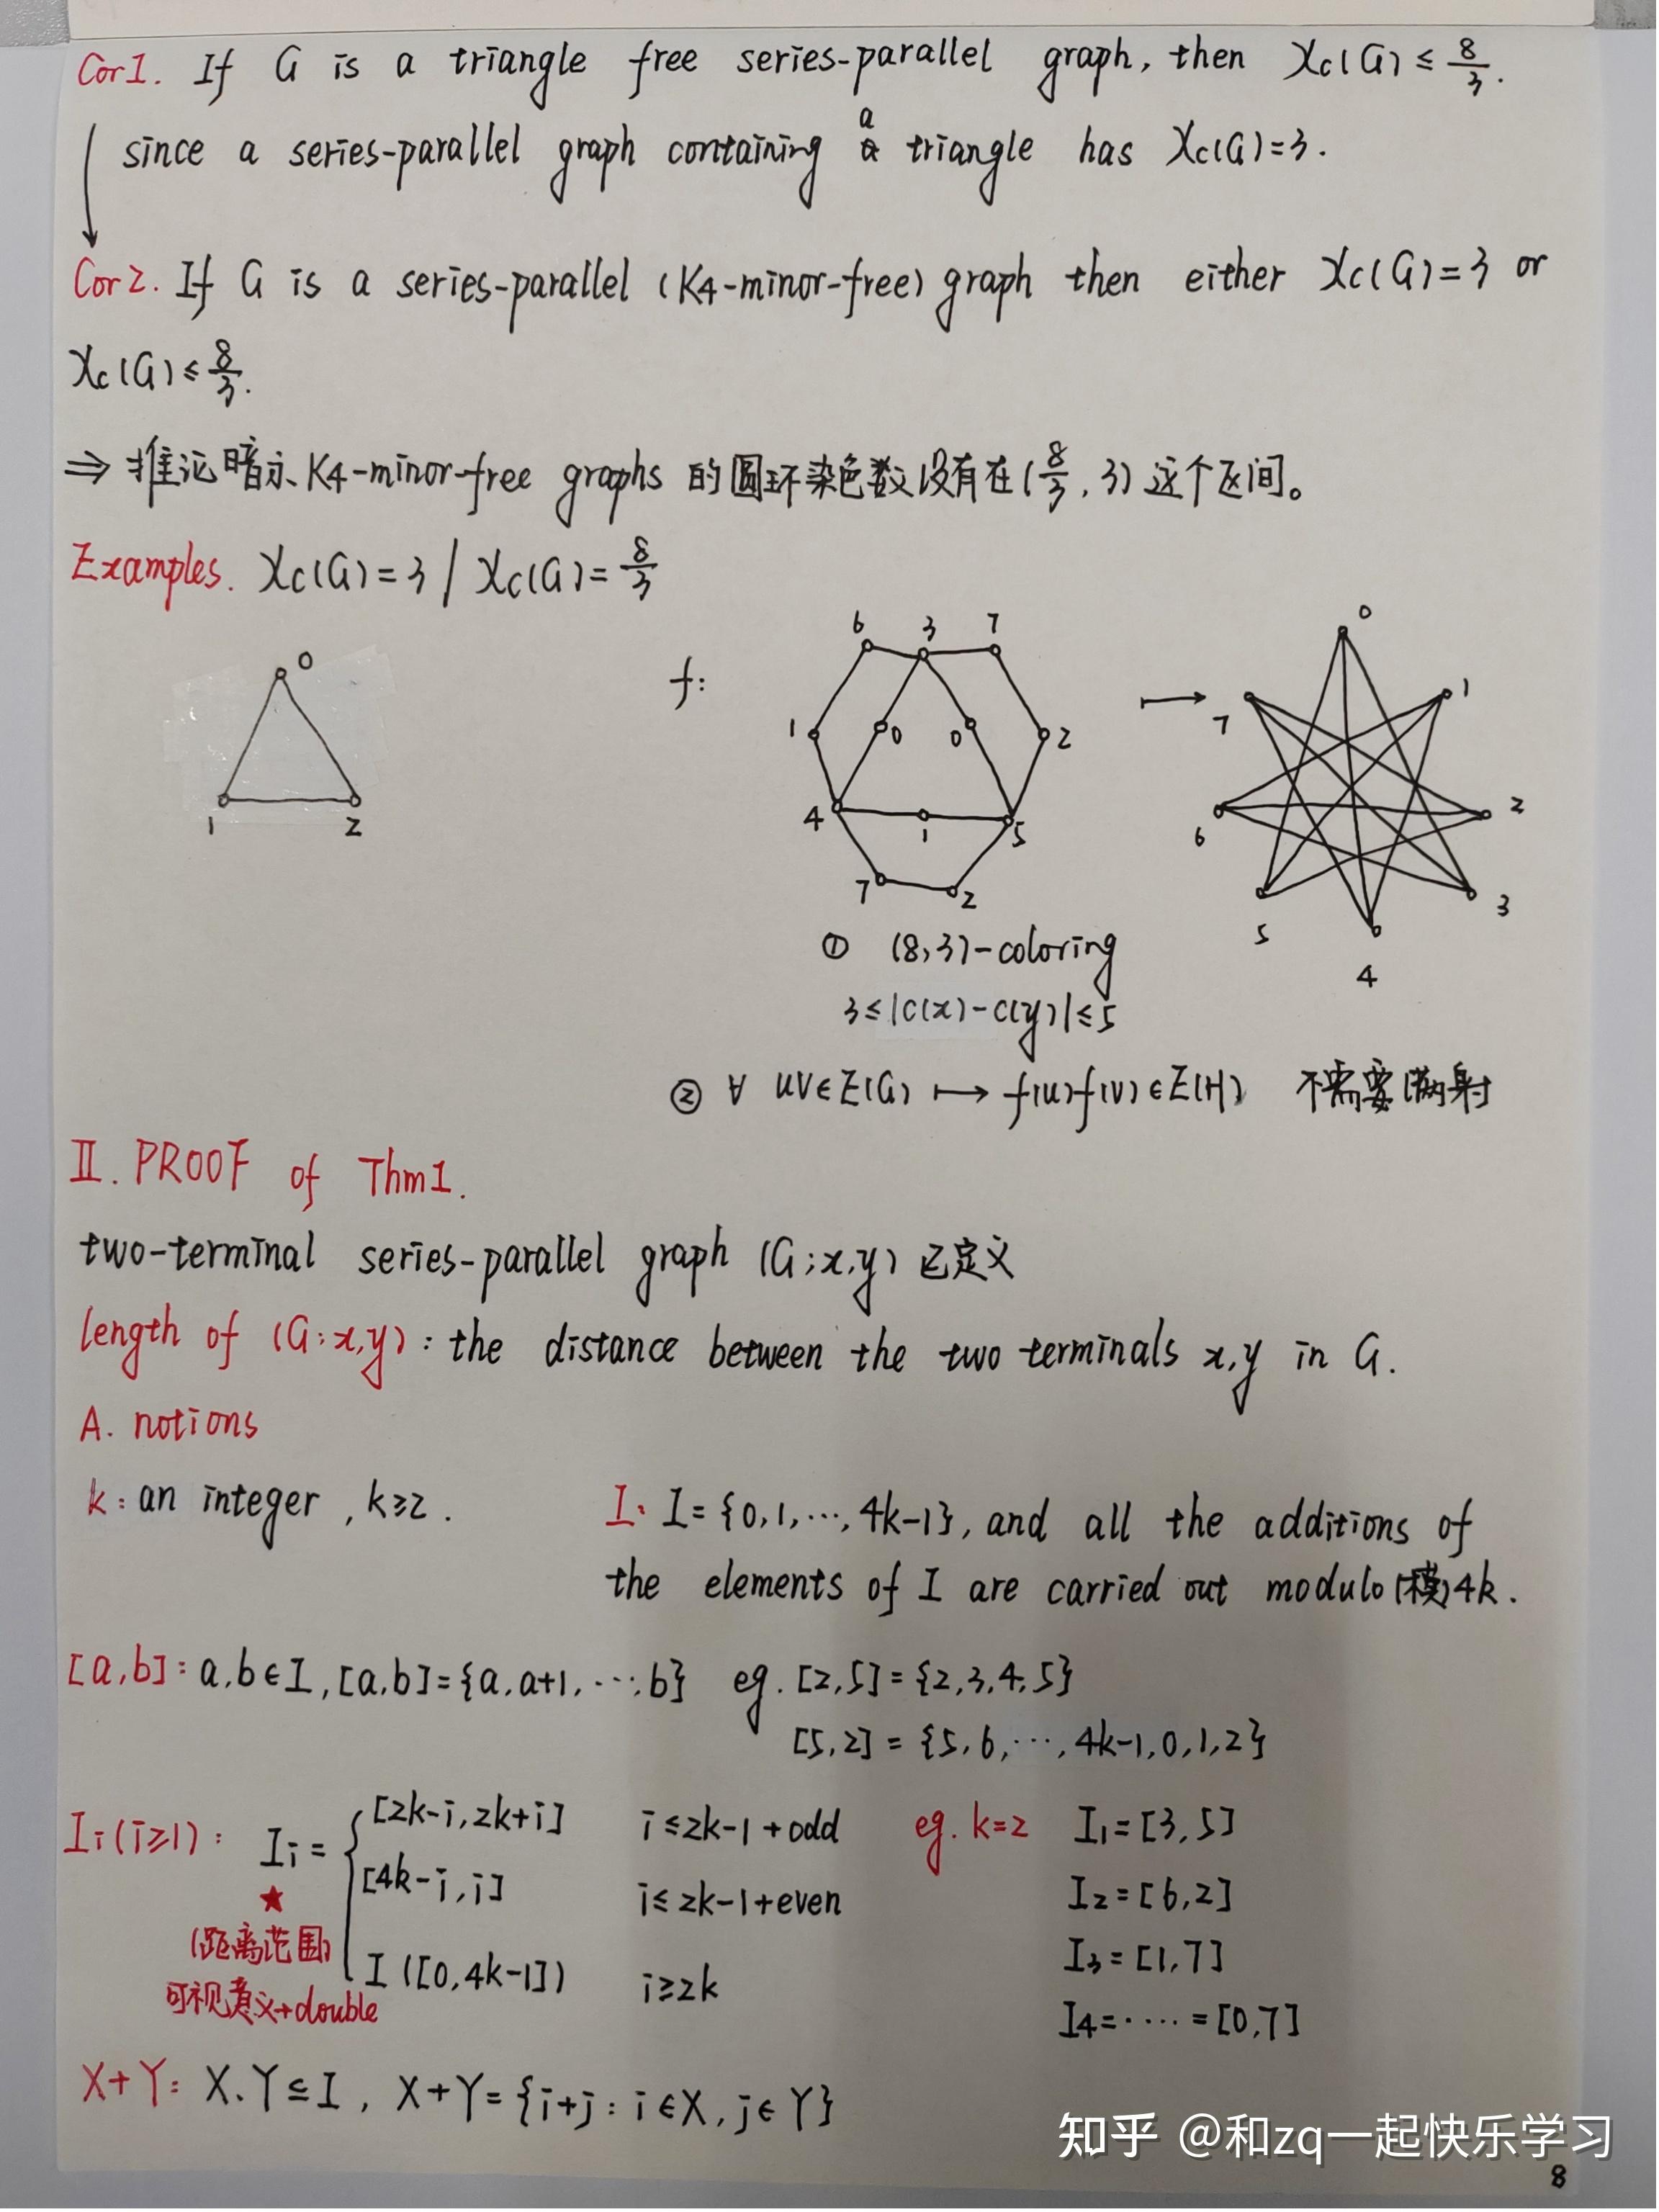 Cor1. If G is a triangle free series-parallel graph, then χc(G) ≤ 8/3.
since a series-parallel graph containing a triangle has χc(G)=3.
Cor2. If G is a series-parallel (K4-minor-free) graph then either χc(G)=3 or
χc(G) ≤ 8/3.
⇒ 推论暗示 K4-minor-free graphs 的圆环染色数没有在(8/3, 3)这个区间。
Examples. χc(G)=3 / χc(G)=8/3
0
1 2
f:
6 3 7
1 0 0 2
4 1 5
7 2
↦
0
7 1
6 2
5 3
4
① (8,3)-coloring
3≤|c(x)-c(y)|≤5
② ∀ uv∈E(G) ↦ f(u)f(v)∈E(H) 不需要满射
II. PROOF of Thm1.
two-terminal series-parallel graph (G;x,y) 已定义
length of (G:x,y): the distance between the two terminals x,y in G.
A. notions
k: an integer, k≥2. I: I={0,1,…,4k-1}, and all the additions of
the elements of I are carried out modulo(模)4k.
[a,b]: a,b∈I, [a,b]={a,a+1,…,b} eg. [2,5]={2,3,4,5}
[5,2]={5,6,…,4k-1,0,1,2}
Ii(i≥1): Ii= { [2k-i,2k+i] i≤2k-1+odd eg. k=2 I1=[3,5]
[4k-i,i] i≤2k-1+even I2=[6,2]
★
(距离范围) I3=[1,7]
I ([0,4k-1]) i≥2k
可视意义→double I4=……=[0,7]
X+Y: X、Y⊆I, X+Y={i+j: i∈X, j∈Y}
知乎 @和zq一起快乐学习
8